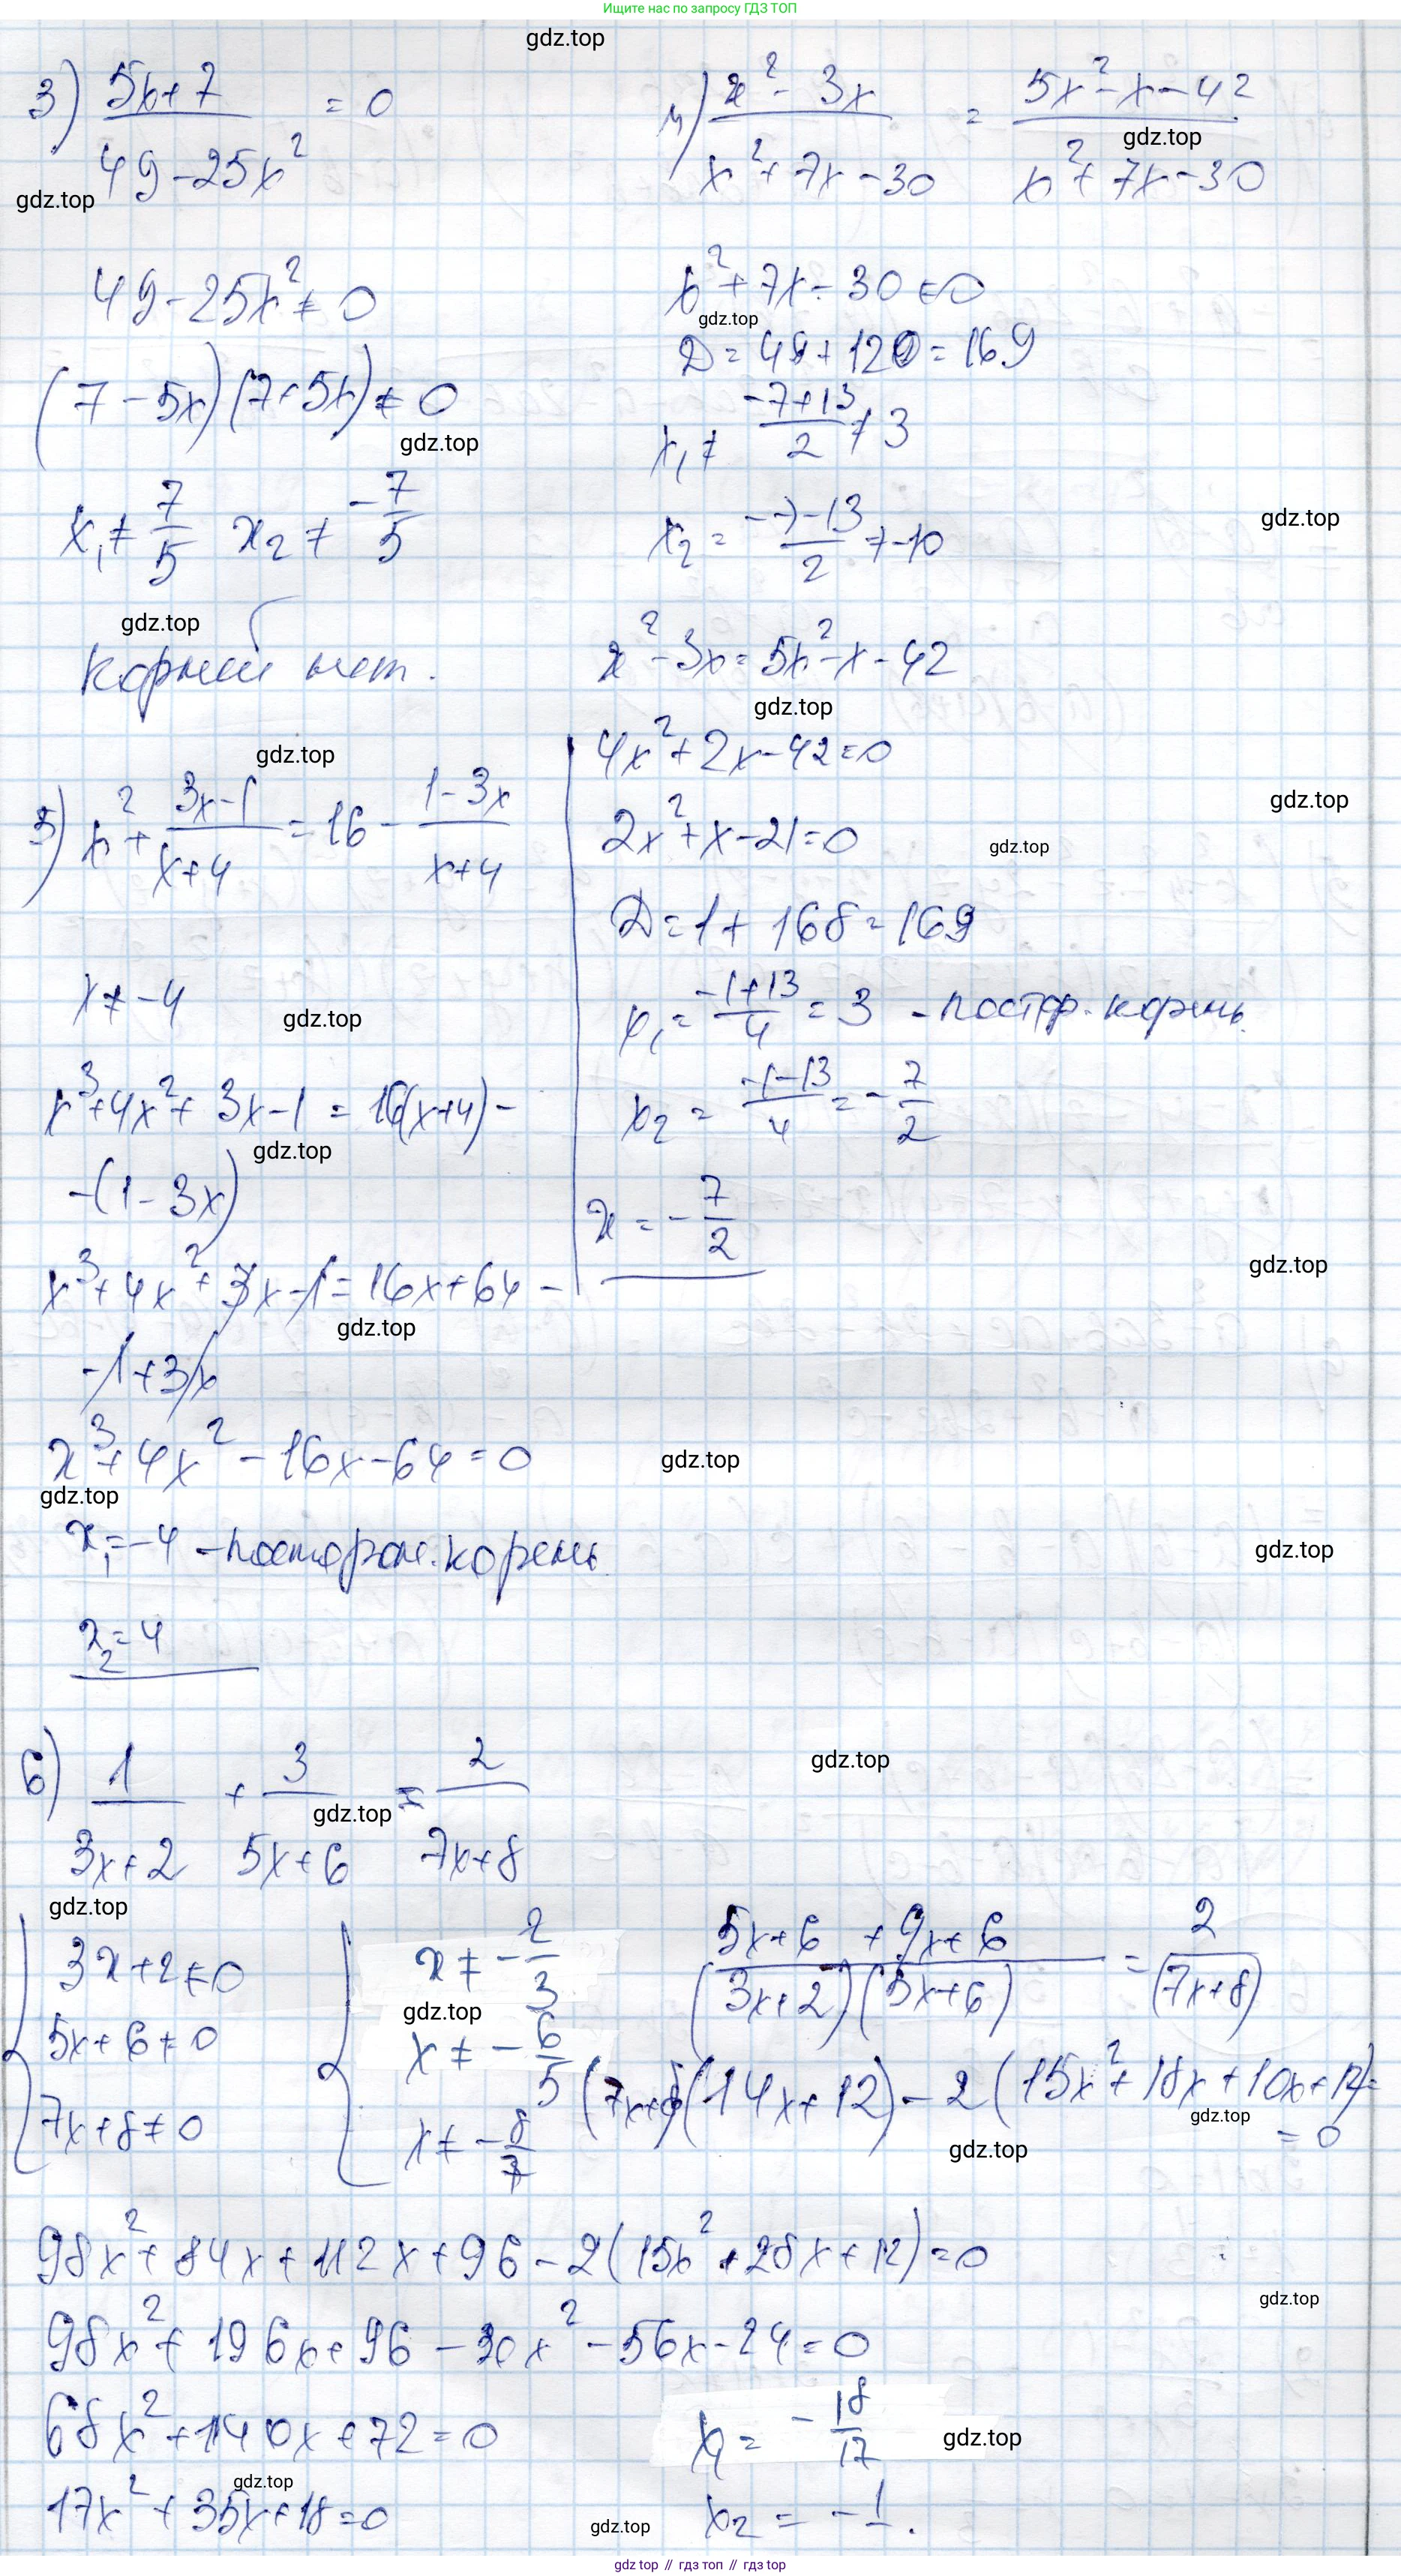 Ищите нас по запросу ГДЗ ТОП
gdz.top
3) (5x+7)/(49-25x²) = 0
gdz.top
49-25x² ≠ 0
(7-5x)(7+5x) ≠ 0
gdz.top
x₁ ≠ 7/5 x₂ ≠ -7/5
gdz.top
корней нет.
4) (x²-3x)/(x²+7x-30) = (5x²-x-42)/(x²+7x-30)
gdz.top
x²+7x-30 ≠ 0
gdz.top
D = 49+120 = 169
x₁ ≠ (-7+13)/2 ≠ 3
gdz.top
x₂ = (-7-13)/2 ≠ -10
x²-3x = 5x²-x-42
gdz.top
4x²+2x-42=0
gdz.top
2x²+x-21=0
gdz.top
D=1+168=169
x₁ = (-1+13)/4 = 3 - постор. корень.
x₂ = (-1-13)/4 = -7/2
x = -7/2
gdz.top
gdz.top
5) x² + (3x-1)/(x+4) = 16 - (1-3x)/(x+4)
x ≠ -4
gdz.top
x³+4x²+3x-1 = 16(x+4)-
gdz.top
-(1-3x)
x³+4x²+3x-1=16x+64-
gdz.top
-1+3x
x³+4x²-16x-64=0
gdz.top
gdz.top
x₁=-4 -посторон. корень.
gdz.top
x₂=4
6) 1/(3x+2) + 3/(5x+6) = 2/(7x+8)
gdz.top
gdz.top
gdz.top
{3x+2≠0 {x ≠ -2/3
5x+6≠0 x ≠ -6/5
7x+8≠0 x ≠ -8/7
gdz.top
(5x+6+9x+6)/((3x+2)(5x+6)) = 2/(7x+8)
(7x+8)(14x+12)-2(15x²+18x+10x+12)=
gdz.top
= 0
gdz.top
98x²+84x+112x+96-2(15x²+28x+12)=0
gdz.top
98x²+196x+96-30x²-56x-24=0
68x²+140x+72=0 x₁ = -18/17
gdz.top
gdz.top
17x²+35x+18=0 x₂ = -1.
gdz.top
gdz top // гдз топ // gdz top